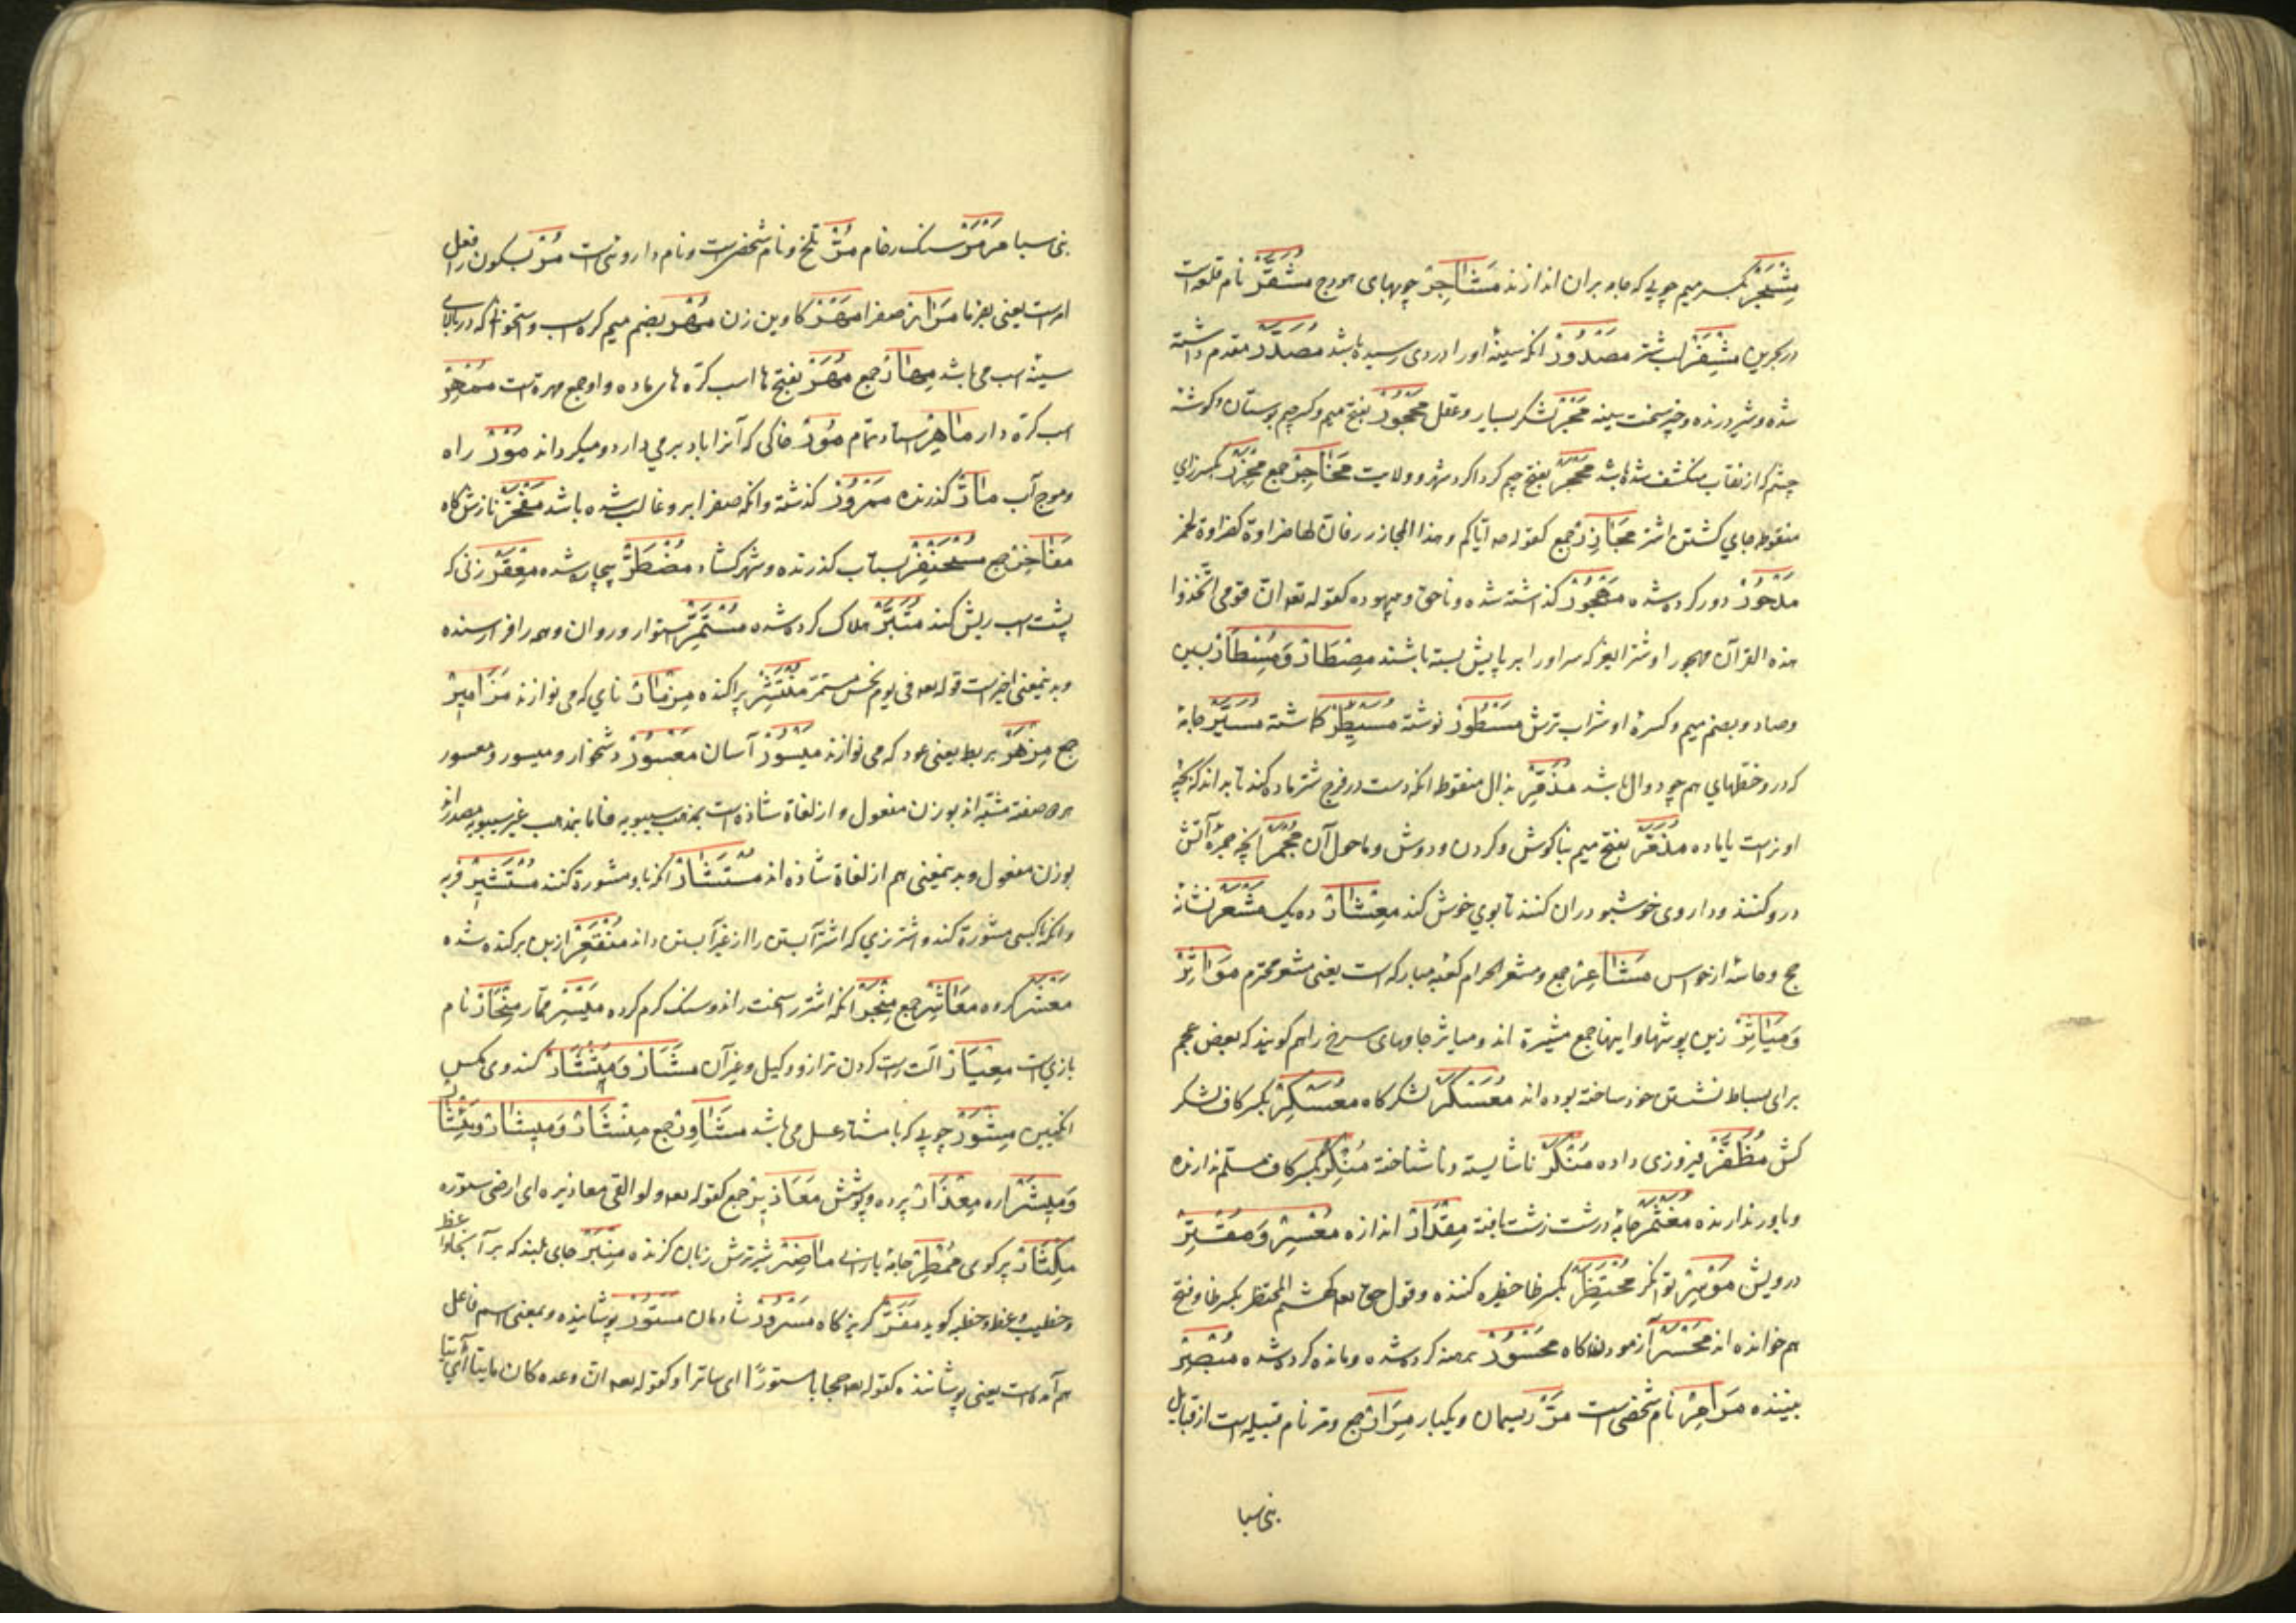 مِشْجَرْ بکسر میم چوبی که جامه بران اندازند مَشَاجِرْ چوبهای هودج مُشَقَّرْ نام قلعه است
در بحرین مِشْفَرْ لب شتر مَصْدُوْرْ انکه سینهٔ اورا دردی رسیده باشد مُصَدَّرْ مقدم داشته
شده و شیر درنده و چیز سخت سینه مَجْرْ لشکر بسیار و عقل مَحْجِرْ بفتح میم و کسر جیم بوستان و کوشهٔ
چشم که از نقاب منکشف شده باشد مَحْجَرْ بفتح جیم کرداکرد شهر و ولایت مَحَاجِرْ جمع مَجْزِرْ بکسر زای
منقوطه جای کشتن اشتر مَجَازِرْ جمع کقوله صه ایاکم و هذا المجازر فان لها ضراوة کضراوة الخمر
مَدْحُوْرْ دور کرده شده مَهْجُوْرْ کذاشته شده و ناحق و بیهوده کقوله تعه ان قومی اتخذوا
هذه القرآن مهجورا و شترا نیز که سر اورا بر پایش بسته باشند مِصْطَارْ وَمُسْطَارْ بسین
و صاد و بضم میم و کسرهٔ او شراب ترش مَسْطُوْرْ نوشته مُسَیْطِرْ کاشته مُسَیَّرْ جامهٔ
که در و خطهای همچو دوال باشد مُذَمِّرْ بذال منقوطه انکه دست در فرج شتر ماده کند تا بداند که بچهٔ
او نرست یا ماده مُذَمَّرْ بفتح میم بناکوش و کردن و دوش و ماحول آن مِجْمَرْ انچه جمرهٔ آتش
درو کنند و داروی خوشبو دران کنند تا بوی خوش کند مِعْشَارْ ده یک مَشْعَرْ نشانهٔ
حج و حاسهٔ از حواس مَشَاعِرْ جمع و مشعر الحرام کعبه مبارکه است یعنی مشعر محترم مَوَاثِرْ
وَمَیَاثِرْ زین پوشها و اینها جمع میثرة اند و میاثر جامهای سرخ را هم کویند که بعض عجم
برای بساط نشستن خود ساخته بوده اند مُعَسْکَرْ لشکر کاه مُعَسْکِرْ بکسر کاف لشکر
کش مُظَفَّرْ فیروزی داده مُنْکَرْ ناشایسته و ناشناخته مُنْکِرْ بکسر کاف مسلم ندارنده
و باور ندارنده جامهٔ درشت زشت بافته مِقْدَارْ اندازه مُعْسِرْ وَمُقْتِرْ
درویش مُوْسِرْ توانکر مُحْتَظِرْ بکسر ظا حظیره کننده و قول حق تعه کهشیم المحتظر بکسر ظا و فتح
هم خوانده اند آزمودن کاه مَحْسُوْرْ برهنه کرده شده و مانده کرده شده مُبْصِرْ
بیننده مَرَامِرْ نام شخصی است مَرّْ ریسمان و یکبار مِرَارْ جمع و مر نام قبیله است از قبایل
بنی سبا
بنی سبا مَرْمَرْ سنک رخام مُرّْ تلخ و نام شخصی است و نام داروئی است مُرْ بسکون را فعل
امر است یعنی بفرما مَرَائِرْ صفرا مَهْرْ کاوین زن مُهْرْ بضم میم کره اسب و استخوانی که در بالای
سینه اسب می باشد مِهَارْ جمع مُهَرْ بفتح ها اسب کره های ماده و او جمع مهرة است مُمْهِرْ
اسب کره دار مَاهِرْ استاد تمام مُوْرْ خاکی که آنرا باد برمی دارد و میکرداند مَوْرْ راه
و موج آب مَارّْ کذرنده مَمْرُوْرْ کذشته و انکه صفرا برو غالب شده باشد مَفْخَرْ نازش کاه
مَفَاخِرْ جمع مُسْحَنْفِرْ بشتاب کذرنده و شهر کشاد مُضْطَرّْ بیچاره شده مِعْقَرْ زنی که
پشت اسب ریش کند مُتَبَّرْ هلاک کرده شده مُسْتَمِرّْ استوار و روان و همه را فرارسنده
و بدینمعنی اخیر است قوله تعه فی یوم نحس مستمر مُنْتَشِرْ پراکنده مِزْمَارْ نای که می نوازند مَزَامِیْرْ
جمع مِزْهَرْ بربط یعنی عود که می نوازند مَیْسُوْرْ آسان مَعْسُوْرْ دشخوار و میسور و معسور
هر دو صفته مشبه اند بوزن مفعول و از لغاة شاذه است بمذهب سیبویه فاما بمذهب غیر سیبویه مصدراند
بوزن مفعول و بدینمعنی هم از لغاة شاذه اند مُسْتَشَارْ انکه باو مشورة کنند مُسْتَشِیْرْ فربه
و انکه با کسی مشورة کند و اشتر نری که اشتر آبستن را از غیر آبستن داند مُنْقَعِرْ از بن برکنده شده
مَعْشَرْ کروه مَعَاشِرْ جمع مِنْجَرْ انکه اشتر را سخت راند و سنک کرم کرده مَیْسِرْ قمار نام
بازی است مِعْیَارْ آلت راست کردن ترازو و کیل و غیر آن مَشَارْ وَمُشْتَارْ کندوی مکس
انکبین مِشْوَرْ چوبی که با مشتار عسل می باشد مَشَاوِرْ جمع مِنْشَارْ وَمِیْشَارْ وَمِئْشَارْ
وَمِیْشَرْ اره مِعْذَارْ پرده و پوشش مَعَاذِیْرْ جمع کقوله تعه و لو القی معاذیره ای ارخی ستوره
مِکْثَارْ پرکوی مِمْطَرْ جامهٔ بارانی مَاضِرْ شیر ترش زبان کزنده مِنْبَرْ جای بلند که بر آنجا واعظ
و خطیب وعظ و خطبه کوید مَفَرّْ کریزکاه مَسْرُوْرْ شادمان مَسْتُوْرْ پوشانیده و بمعنی اسم فاعل
هم آمده است یعنی پوشاننده کقوله تعه حجابا مستورًا ای ساترا و کقوله تعه ان وعده کان ماتیا ای آتیا